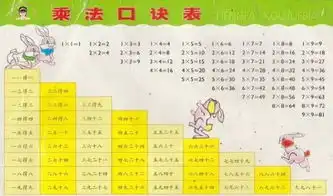 乘法口诀表
1×1=1 1×2=2 1×3=3 1×4=4 1×5=5 1×6=6 1×7=7 1×8=8 1×9=9
2×2=4 2×3=6 2×4=8 2×5=10 2×6=12 2×7=14 2×8=16 2×9=18
3×3=9 3×4=12 3×5=15 3×6=18 3×7=21 3×8=24 3×9=27
4×4=16 4×5=20 4×6=24 4×7=28 4×8=32 4×9=36
5×5=25 5×6=30 5×7=35 5×8=40 5×9=45
6×6=36 6×7=42 6×8=48 6×9=54
7×7=49 7×8=56 7×9=63
8×8=64 8×9=72
9×9=81
一一得一
一二得二 二二得四
一三得三 二三得六 三三得九
一四得四 二四得八 三四十二 四四十六
一五得五 二五一十 三五十五 四五二十 五五二十五
一六得六 二六十二 三六十八 四六二十四 五六三十 六六三十六
一七得七 二七十四 三七二十一 四七二十八 五七三十五 六七四十二 七七四十九
一八得八 二八十六 三八二十四 四八三十二 五八四十 六八四十八 七八五十六 八八六十四
一九得九 二九十八 三九二十七 四九三十六 五九四十五 六九五十四 七九六十三 八九七十二 九九八十一